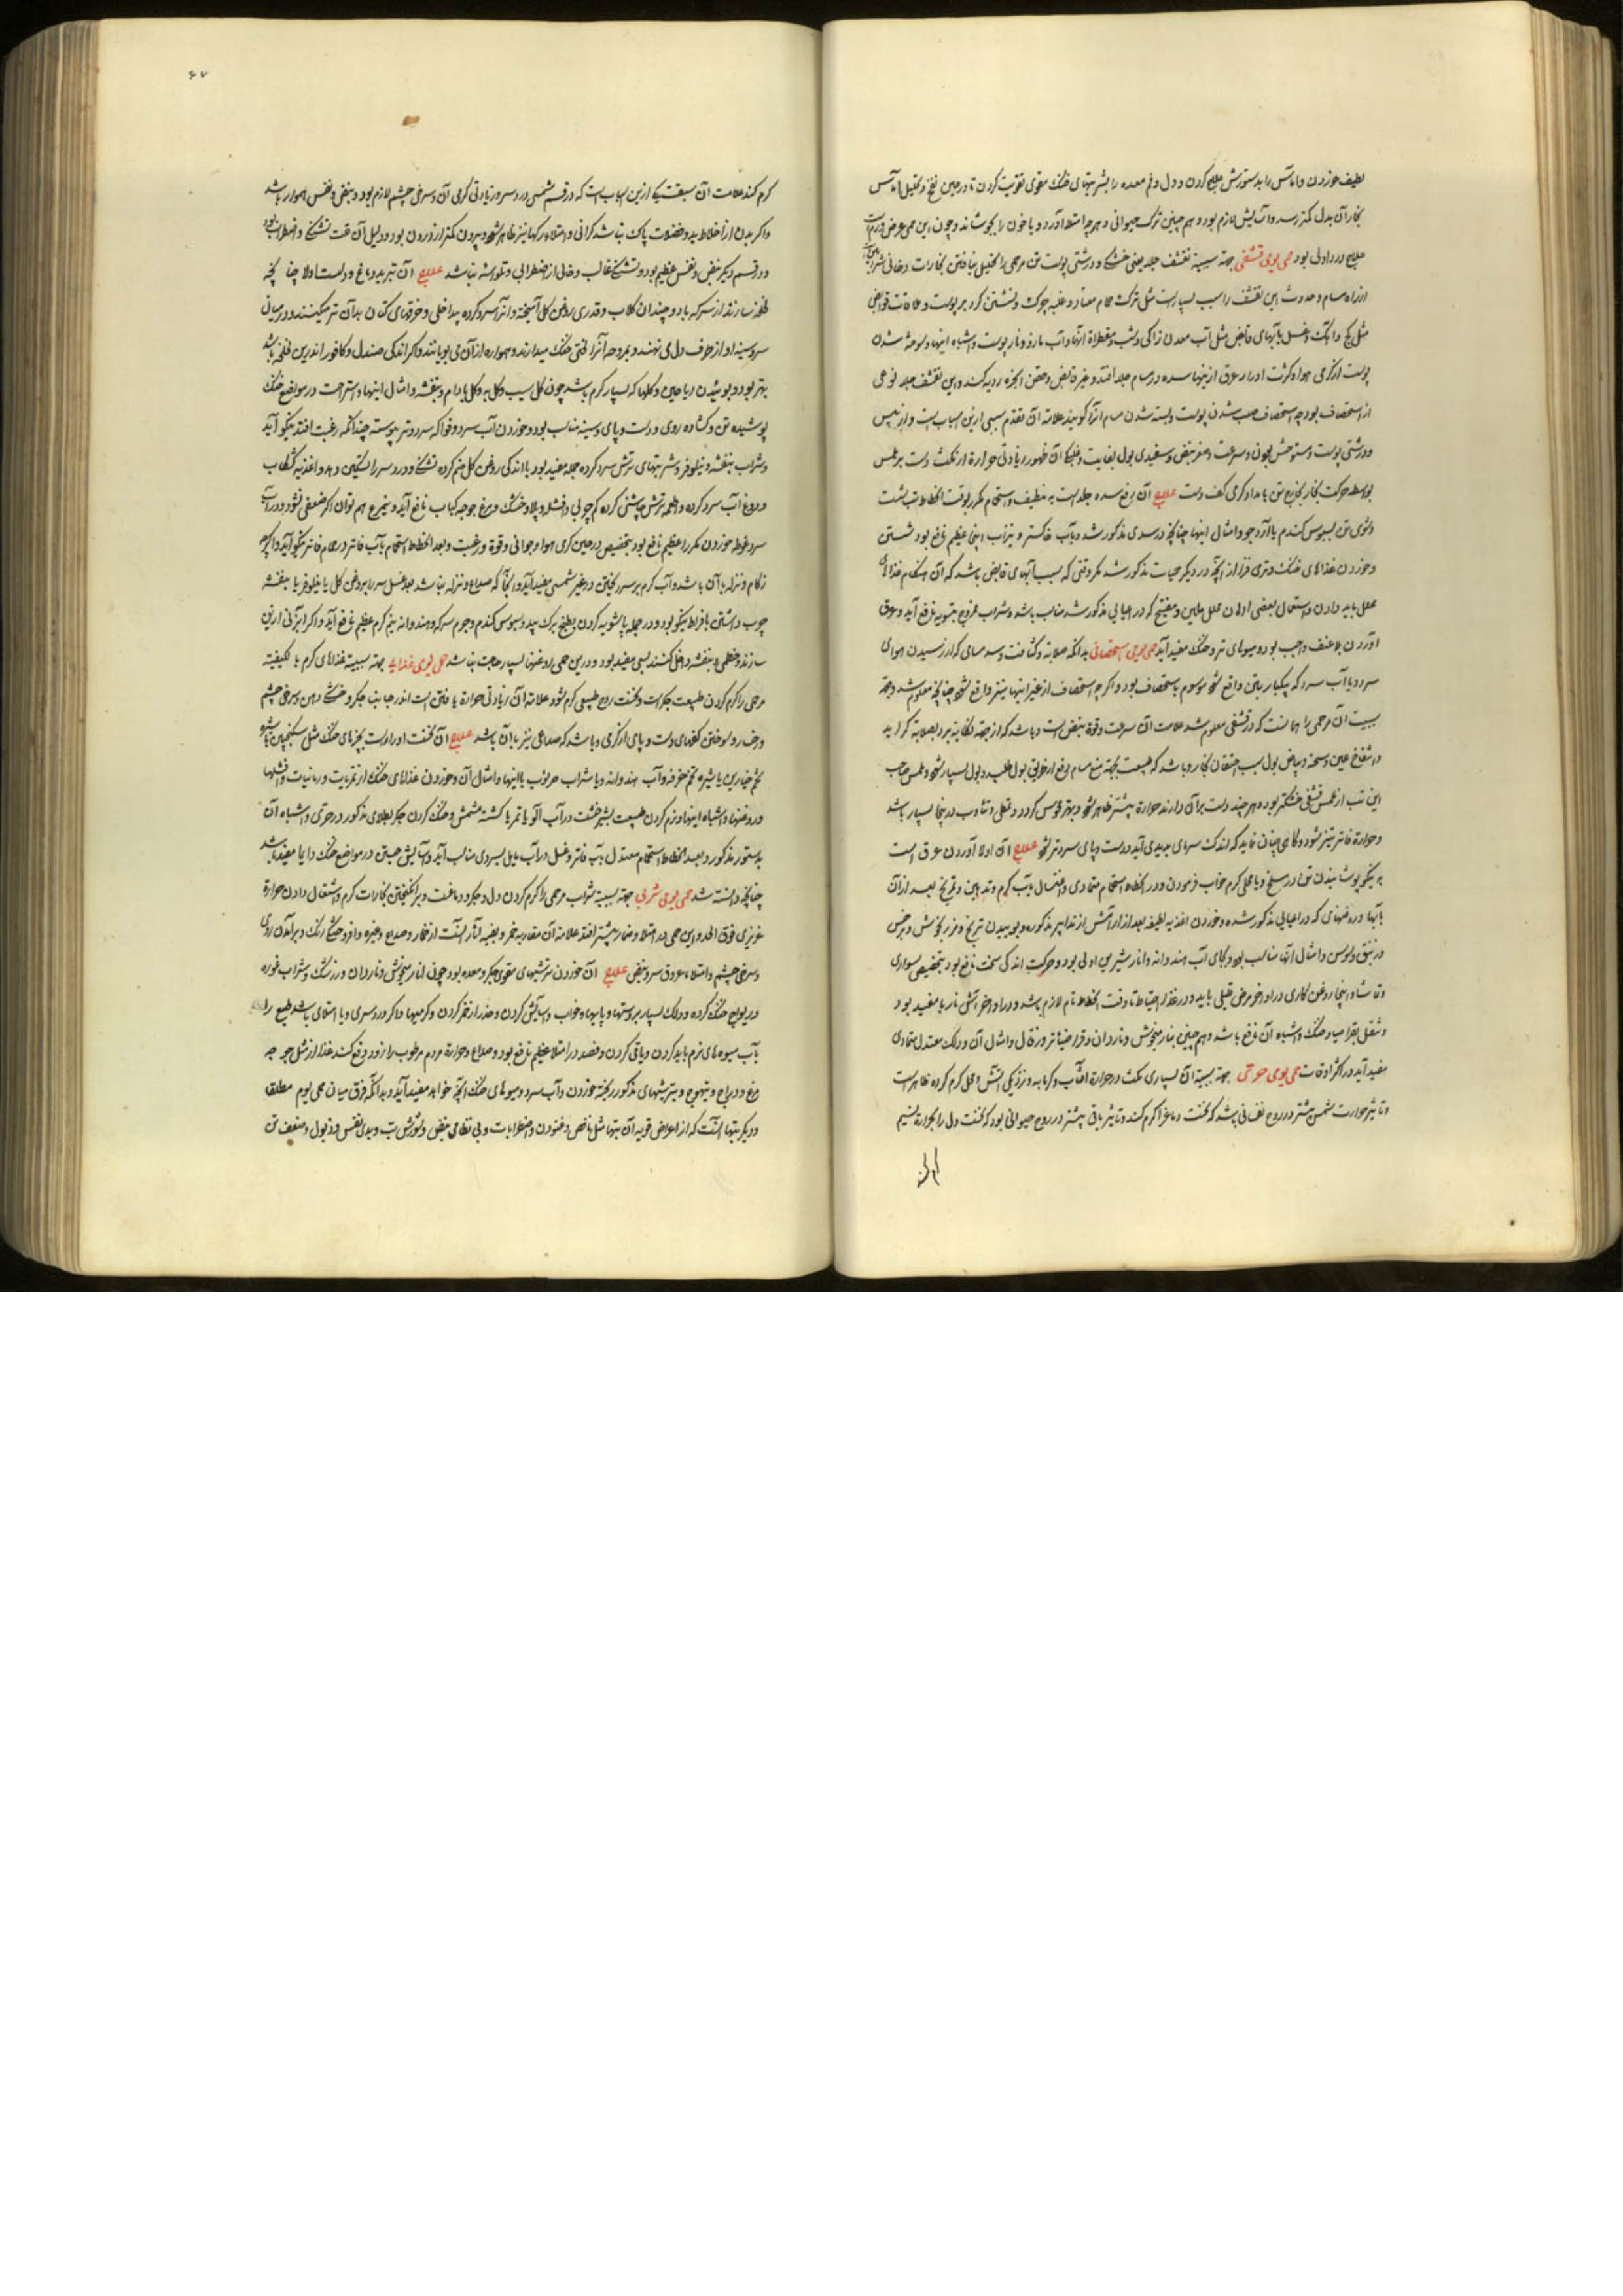 لطیف خوردن و اماس را بدستورش علاج کردن و دل و فم معده را بشربتهای خنک مقوی تقویت کردن تا در حین نضج و تحلیل اماس
بخار آن بدل کمتر رسد و آسایش لازم بود و هم چنین ترک حیوانی و هرچه امتلا آورد و یا خون را بجوشاند و چون این حمی عرض ورم است
علاج ورم اولی بود حمی یومی قشفی جهة سببیه تقشف جلد یعنی خشکی و درشتی پوست تن مر حمی را تحلیل نیافتن بخارات دخانی
از راه مسام و حدوث این تقشف را سبب بسیار است مثل ترک حمام معتاد و غلبه چرک و نشستن کرد بر پوست و ملاقات قوابض
مثل کج و اهک و غسل بآبهای قابض مثل آب معدن زاک و شب و مقطراة آنها و آب مازو و نار پوست و اشباه اینها و سوخته شدن
پوست از کرمی هوا و کثرت ادرار عرق از ینها سده در مسام جلد افتد و غیر قابض وحقن ابخره ردیه کند و این تقشف جلد نوعی
از استحصاف بود چه استحصاف صلب شدن پوست و بسته شدن مسام انرا کویند علامة ان تقدم سببی ازین اسباب است و
و درشتی پوست و سرعت و صغر نبض و سفیدی بول بغایت و ظهور زیادتی حرارة از مکث دست بر لمس
بواسطه حرکت بخار بخارج تن بامداد کرمی کف دست علاج آن رفع سده جلد است به تنظیف و استحمام مکرر بوقت انحطاط تب
و شوی تن بسبوس کندم یا آرد جو و امثال اینها چنانچه در سدی مذکور شد و بآب خاکستر و تیزاب عظیم نافع بود شستن
و خوردن غذاهای خنک و تری فزا از آنچه در دیکر حمیات مذکور شد مکر وقتی که سبب آبهای قابض باشد که آن هنکام غذاهای
محلل باید دادن و استعمال بعضی ادهان محلل ملین و مفتح که در اعیایی مذکور شد مناسب باشد و شراب ممزوج نافع آید و عرق
اوردن بلا عنف واجب بود و میوهای تر و خنک مفید آید حمی یومی استحصافی بدانکه صلابة و کثافت و سد مسامی که از رسیدن هوای
سرد و یا آب سرد که بیکبار بتن واقع شود موسوم باستحصاف بود و اکرچه استحصاف از غیر اینها نیز واقع شود چنانچه معلوم شد وجهة
سببیت آن مر حمی را همانست که در قشفی معلوم شد علامت آن سرعت و قوة نبض است و باشد که از جهة
و انتفاخ عین و سحنه و بیاض بول سبب احتقان بخار و باشد که طبیعت بجهة منع مسام دفع از بول طلبد و بول بسیار شود و لمس صاحب
این تب از لمس قشفی خشکتر بود و هر چند دست بر آن دارند حرارة بیشتر ظاهر شود و بهتر محسوس کردد و تمطی و تثاوب درینجا بسیار باشد
و حرارة فاتر تیز نشود و کاهی چنان نماید که اندک سرمای پدید می آید و دست و پای سردتر شود علاج آن اولا آوردن عرق است
به نیکو پوشانیدن تن در مسلخ و یا محلی کرم خواب فرمودن و در انحطاط استحمام متمادی و اغتسال بآب کرم و تدهین و تمریخ بعد از آن
بآبها و روغنهای که در اعیایی مذکور شده و خوردن اغذیه لطیفه بعد از آرامش از تدابیر مذکوره و بوییدن ترنج و مرزنجوش و نرجس
و زنبق و سوسن و امثال آنها مناسب بود و بجای آب هندوانه و انار شیرین اولی بود و حرکت اندک سخت نافع بود بتخصیص سواری
و تماشا و اینجا روغن کاری در اواخر مرض قلیلی باید و در غذا احتیاط تا وقت انحطاط تام لازم باشد و در اواخر آتش نار با مفید بود
و شغل بقراصیا و خنک و اشباه آن نافع باشد و هم چنین بنار میخوش و ناردان و قراضیا تر و زغال و امثال آن و دلک معتدل متمادی
مفید آید در اکثر اوقات حمی یومی حرقی جهة سببیة آن بسیاری مکث در حرارة آفتاب و کرمابه و نزدیکی آتش و محل کرم کرده ظاهر است
و تاثیر حرارت شمس بیشتر در روح نفسانی باشد که نخست دماغ را کرم کند و تاثیر باقی بیشتر در روح حیوانی بود که نخست دل را بحرارة نسیم
۶۷
کرم کند علامت آن سبقت یکی ازین اسباب است که در قسم شمسی درد سر و زیادتی کرمی آن و سرخی چشم لازم بود و نبض و نفس هموار باشد
و اکر بدن از اخلاط بد و فضولات پاک نباشد کرانی و امتلاء رکها نیز ظاهر شود و بیرون کمتر از درون بود و دلیل آن قلت تشنکی و اضطراب بود
و در قسم دیکر نبض و نفس عظیم بود و تشنکی غالب و خالی از اضطرابی و تلواسه نباشد علاج آن تبرید دماغ و دلست اولا چنانچه
لخلخه سازند از سرکه باد و چندان کلاب و قدری روغن کل آمیخته و انرا سرد کرده پیدا خلی و خرقهای کتان بدآن تر میکنند و در میان
سر و سینه او از حوف دل می نهند و بمروحه آنرا لختی خنک میدارند و همواره ازآن می بویانند و اکر اندکی صندل و کافور اندرین لخلخه باشد
بهتر بود و بوییدن ریاحین و کلها که بسیار کرم نباشد چون کل سیب و کل به و کل بادام و بنفشه و امثال اینها و استراحت در مواضع خنک
پوشیده تن و کشاده روی و دست و پای و سینه مناسب بود و خوردن آب سرد و فواکه سرد و تر پیوسته چندانکه رغبت افتد نیکو آید
و شراب بنفشه و نیلوفر و شربتهای ترش سرد کرده جمله مفید بود با اندکی روغن کل ضم کرده تشنکی و درد سر را تسکین دهد و اغذیه
و دوغ آب سرد کرده و اطعمه ترش چاشنی کرده کم چربی و افشله و پلاو خشک و مرغ جوجه کباب نافع آید و نیمرغ هم توان اکر ضعفی نشود و در آب
سرد غوطه خوردن مکرر را عظیم نافع بود بتخصیص در حین کرمی هوا و جوانی و قوة و رغبت و بعد انحطاط استحمام بآب فاتر در حمام فاتر نیکو آید و اکرچه
زکام و نزله با آن باشد و آب کرم بر سر ریختن در غیر شمسی مفید آید و آنجا که صداع و نزله نباشد بعد غسل سر را بروغن کل یا نیلوفر یا بنفشه
چرب داشتن بافراط نیکو بود و در جمله پاشویه کردن بطبیخ برک بید و سبوس کندم و جرم سرکه و هندوانه نیم کرم عظیم نافع آید و اکر ابزنی ازین
سازند و خطمی و بنفشه داخل کنند بسی مفید بود و درین حمی روغنها بسیار حاجت نباشد حمی یومی غذایی جهة سببیة غذاهای کرم بالکیفیة
مر حمی را کرم کردن طبیعت جکر است و نخست روح طبیعی کرم شود علامة آن زیادتی حرارة یافتن است اندر جانب جکر و خشکی دهن و سرخی چشم
و رخسار و سوختن کفهای دست و پای از کرمی و باشد که صداعی نیز با آن باشد علاج آن نخست ادرار است بچیزهای خنک مثل سکنجبین با شیره
تخم خیارین یا شیره تخم خرفه و آب هندوانه و یا شراب خرنوب با اینها و امثال آن و خوردن غذاهای خنک از تمریات و رمانیات و افشلها
و روغنها و اشباه اینها و نرم کردن طبیعت بشیر خشت در آب آلو یا تمر یا کشته مشمش و خنک کردن جکر بطلای مذکور در حرقی و اشباه آن
بدستور مذکور و بعد انحطاط استحمام معتدل بآب فاتر و غسل در آب مایل بسردی مناسب آید و آسایش جستن در مواضع خنک دایما مفید باشد
چنانچه دانسته شد حمی یومی شربی جهة سببیة شراب مر حمی را کرم کردن دل و جکر و دماغست و برانکیختن بخارات کرم و اشتعال دادن حرارة
غریزی فوق الحد و این حمی در امتلا و خمار بیشتر افتد علامة آن مقاربه خمر و بقیه آثار آنست از خمار و صداع و غیره و افروختکی رنک و برآمدن روی
و سرخی چشم و امتلاء عروق سر و نبض علاج آن خوردن ترشیهای مقوی جکر و معده بود چون انار میخوش و ناردان و زرشک و شراب غوره
و ریواج خنک کرده و دلک بسیار بر دستها و پایها و خواب و آسایش کردن و حذر از خمر کردن و کرمیها و اکر درد سری و یا امتلای باشد طبع را
بآب میوه های نرم باید کردن و یا قی کردن و فصد در امتلا عظیم نافع بود و صداع و حرارة مردم مرطوب را زود دفع کند غذا از مثل جوجه
مرغ و دراج و تیهوج و بترشیهای مذکور پخته خوردن و آب سرد و میوهای خنک آنچه خواهد مفید آید و بدانکه فرق میان حمی یوم مطلقا
و دیکر تبها آنست که از اعراض قویه آن تبها مثل ناقض و غنودن و اضطرابات و بی نظامی نبض و شورش تب و بدی نفس و بول و ضعف تن